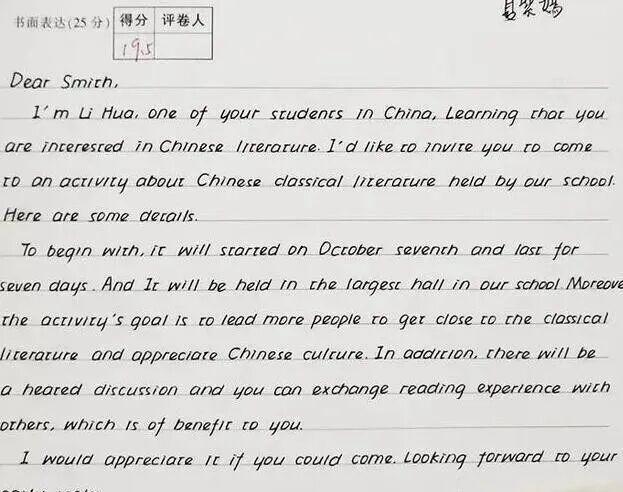 书面表达(25分) 得分 评卷人
19.5
Dear Smith,
I'm Li Hua, one of your students in China, Learning that you
are interested in Chinese literature. I'd like to invite you to come
to an activity about Chinese classical literature held by our school.
Here are some details.
To begin with, it will started on October seventh and last for
seven days. And It will be held in the largest hall in our school Moreove
the activity's goal is to lead more people to get close to the classical
literature and appreciate Chinese culture. In addition, there will be
a heated discussion and you can exchange reading experience with
others, which is of benefit to you.
I would appreciate it if you could come. Looking forward to your